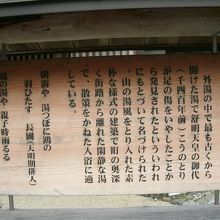 外湯の中で最も古くから
開けた湯で舒明天皇の御代
（千四百年前）こうのとり
が足の傷をいやしたことか
ら発見されたといういわれ
にもとづいて名づけられた
山の湯風をとり入れた素
朴な様式の建築で町の奥深
く街路から離れた閑静な湯
で、散策をかねた入浴に適
している。
朝霧や 湯つぼに鴻の
羽ひたす 長圃（天明期俳人）
鴻の湯や 親子時雨るる